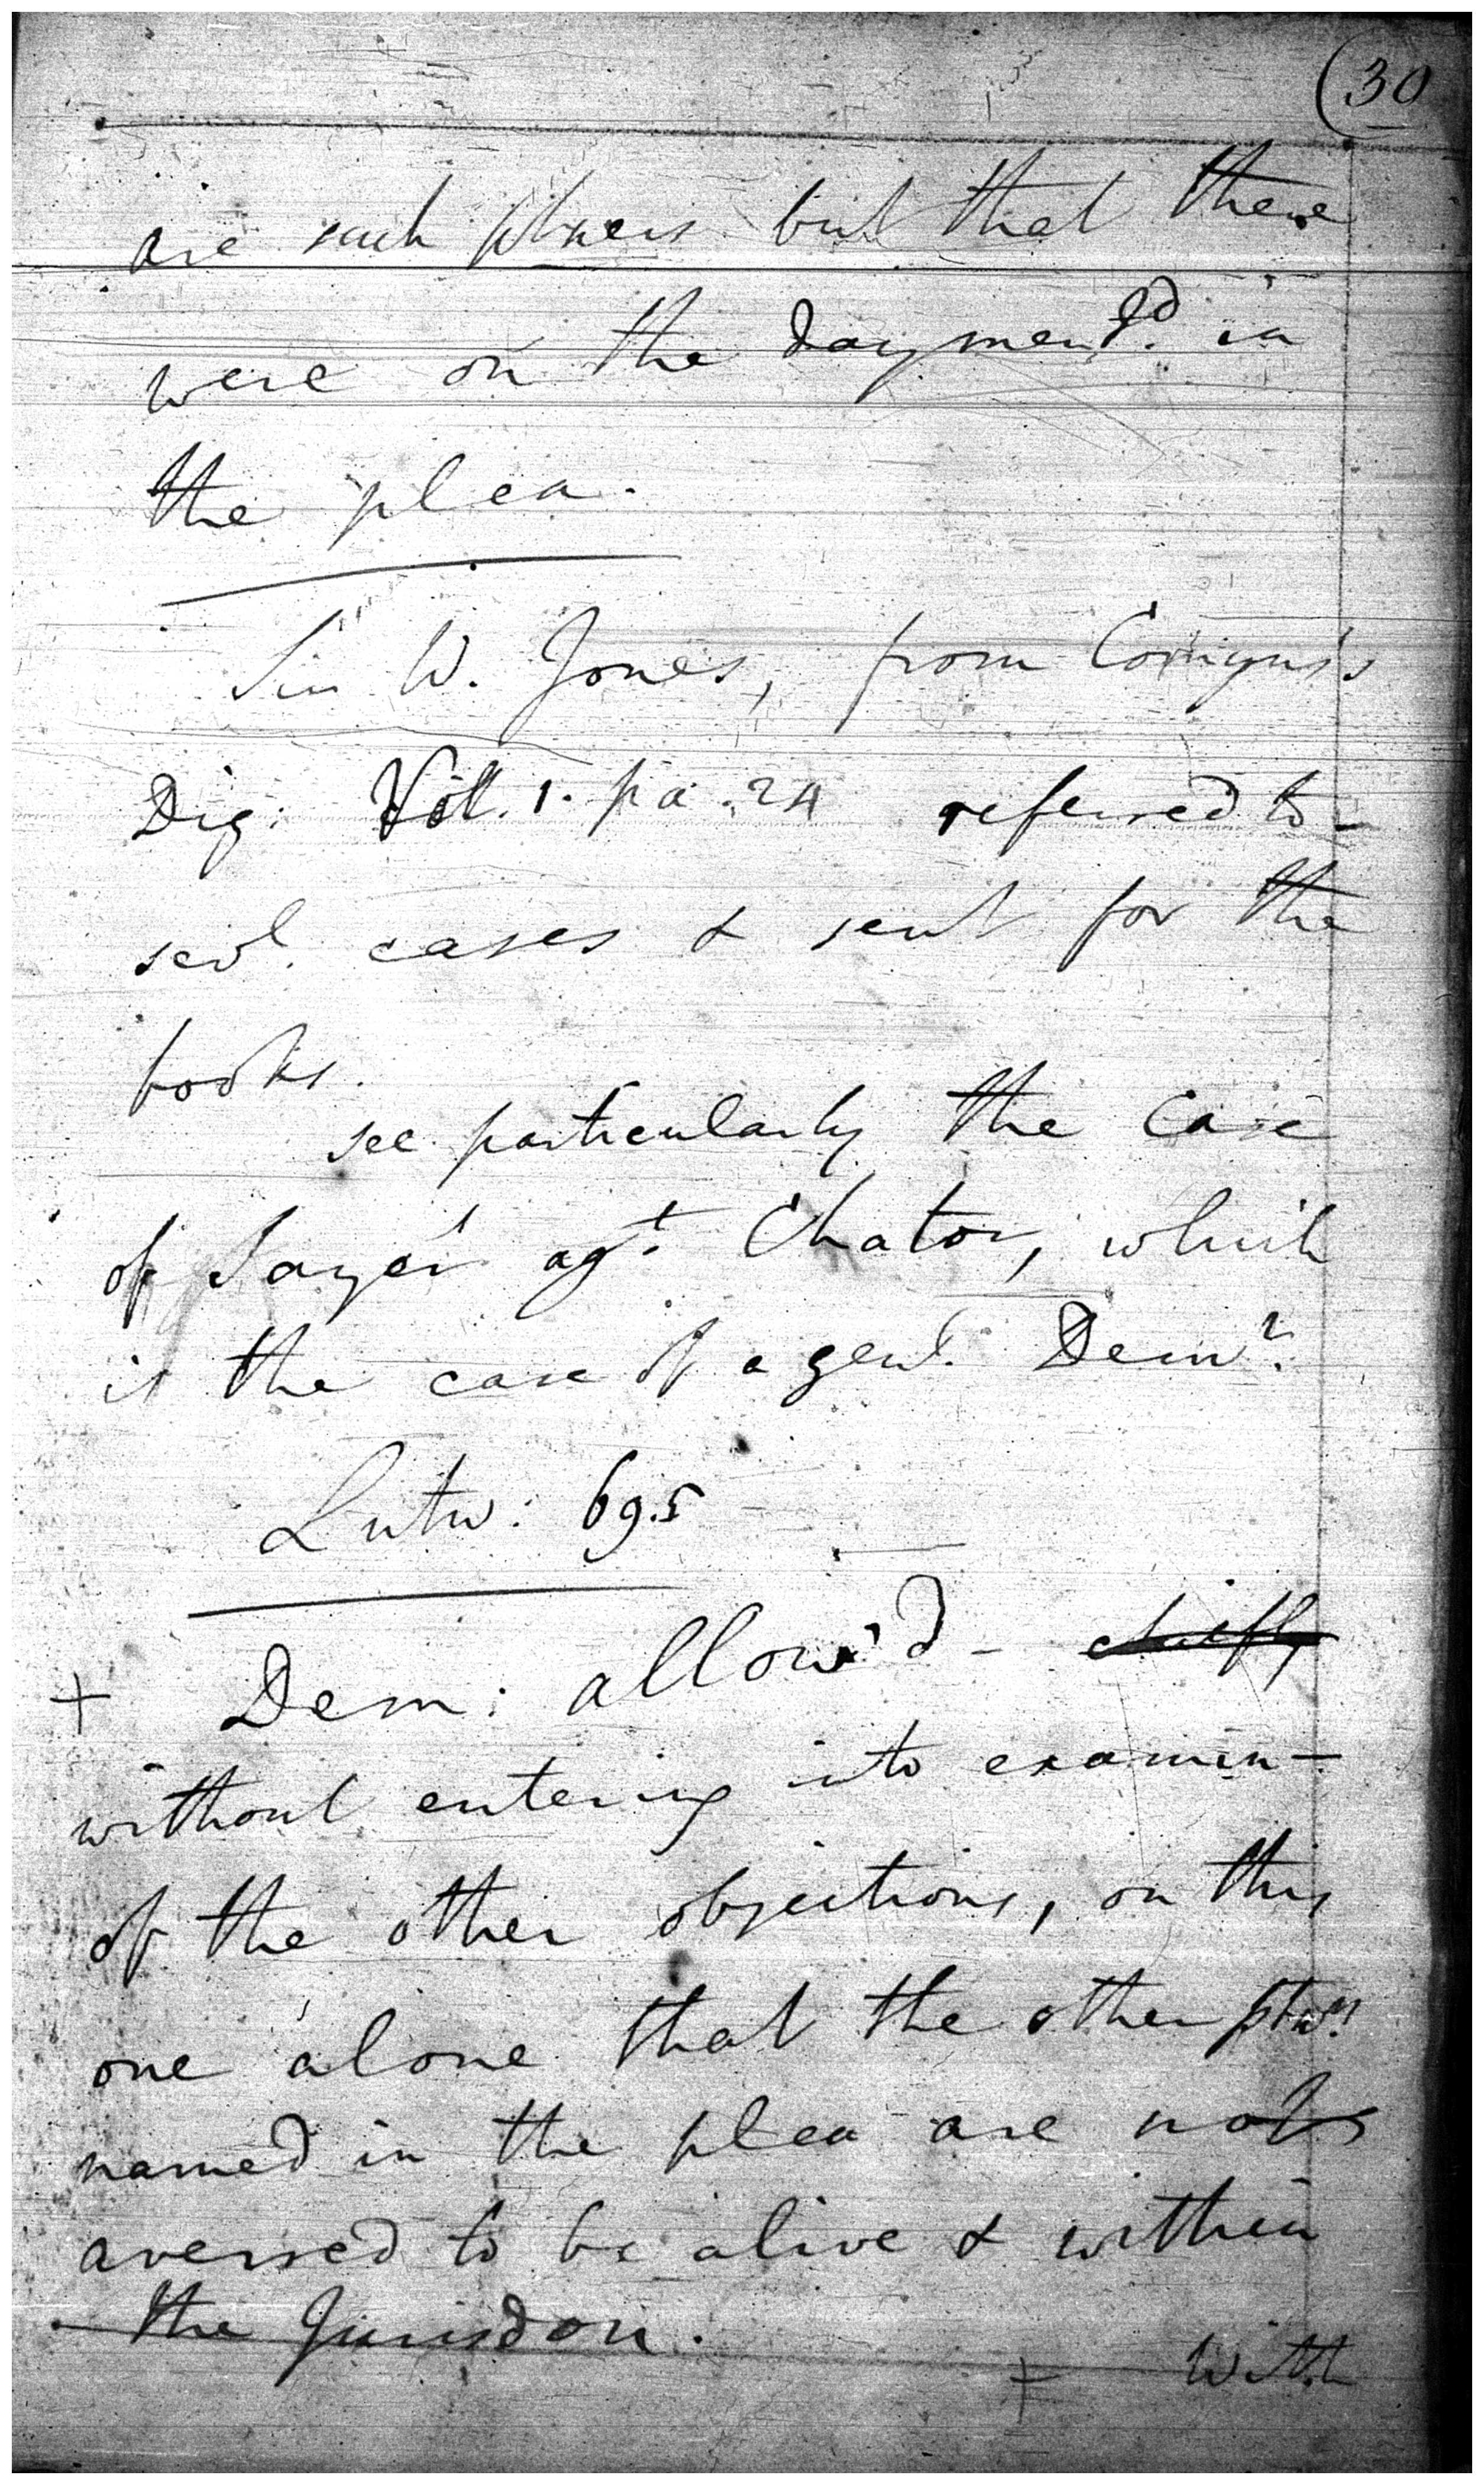 (30
are such ptners but that there
were on the day ment.d in
the plea.
Sir W. Jones, from Comyns's
Dig: Vol. 1. pa. 24 referred to
sevl. cases & sent for the
books.
see particularly the case
of Sayer agt. Chator, which
is the case of a genl. Demr.
Lutw: 695
+ Dem: allow'd - chiefly
without entering into examin-
of the other objections, on this
one alone that the other
named in the plea are not
averred to be alive & within
the Jurisdon.
+ With